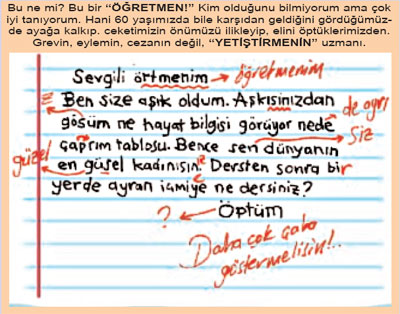 Bu ne mi? Bu bir “ÖĞRETMEN!” Kim olduğunu bilmiyorum ama çok
iyi tanıyorum. Hani 60 yaşımızda bile karşıdan geldiğini gördüğümüz-
de ayağa kalkıp. ceketimizin önümüzü ilikleyip, elini öptüklerimizden.
Grevin, eylemin, cezanın değil, “YETİŞTİRMENİN” uzmanı.
Sevgili örtmenim → öğretmenim
Ben size aşık oldum. Aşkısinızdan
de ayrı
gösüm ne hayat bilgisi görüyor nede
siz
çaprım tablosu. Bence sen dünyanın
güzel
en güsel kadınısın. Dersten sonra bir
yerde ayran içmiye ne dersiniz?
? ← Öptüm
Daha çok çaba
göstermelisin!..